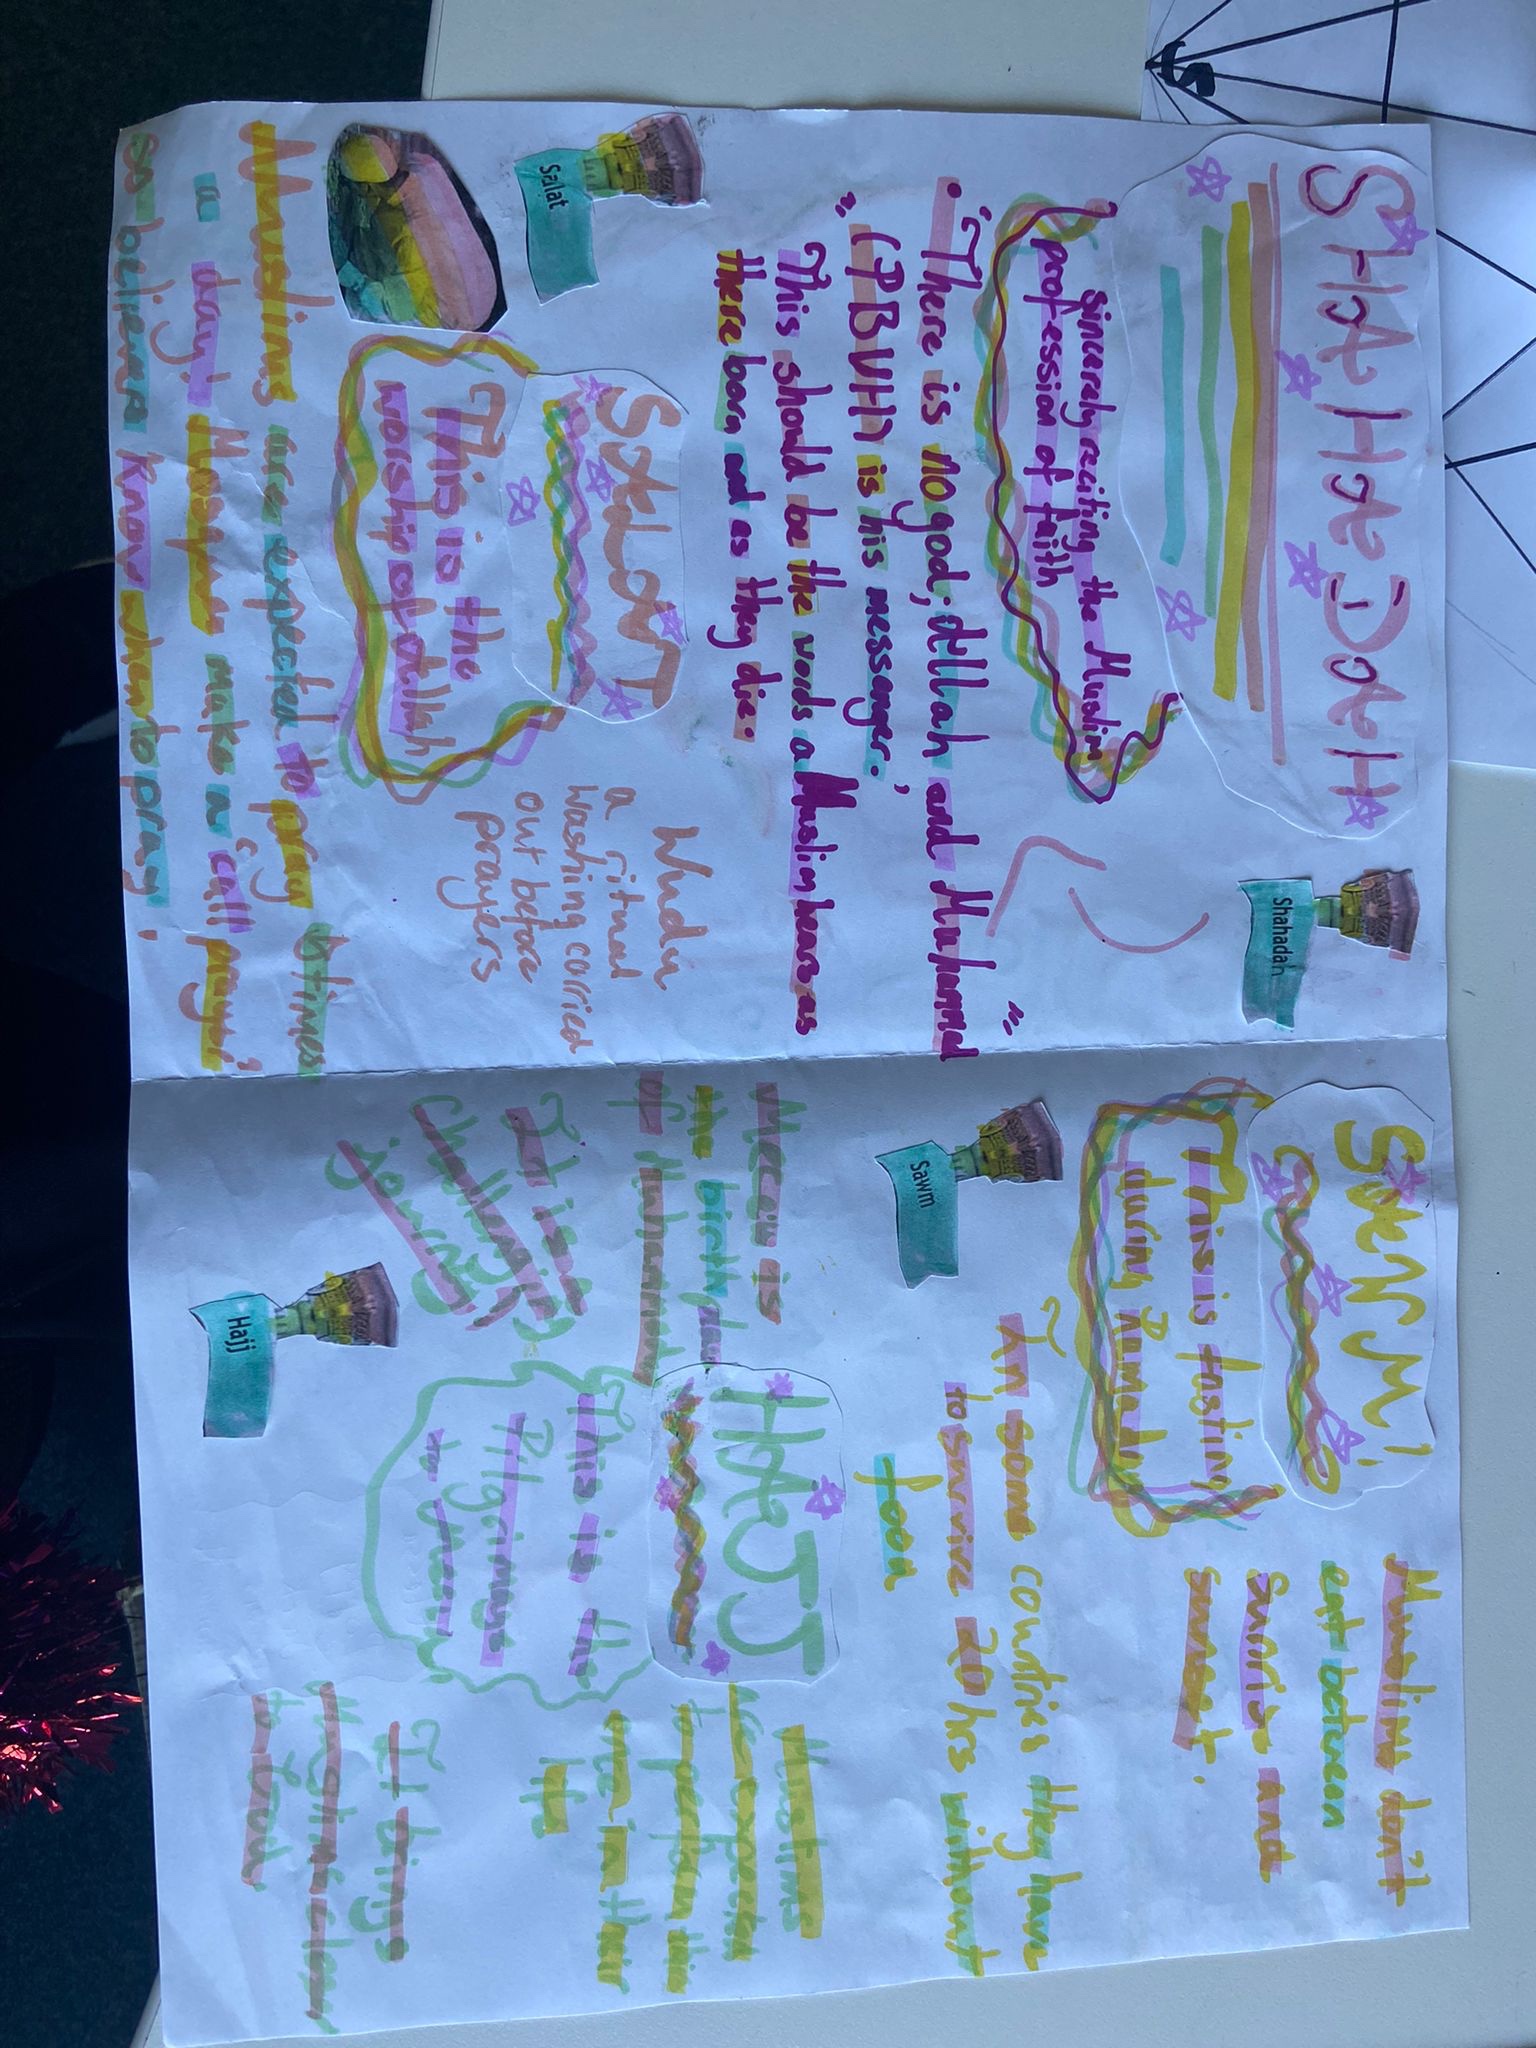 SHAHADAH
Shahadah
sincerely reciting the Muslim
profession of faith
• "There is no god, Allah and Muhammad "
" (PBUH) is his messenger.'
This should be the words a Muslim hears as
there born and as they die.
Salat
SALAT
This is the
worship of Allah
Wudu
a ritual
washing carried
out before
prayers
Muslims are expected to pray 5 times
a day! Mosques make a 'call prayer'
so believers know when to pray!
SAWM!
This is fasting
during Ramadan
Muslims don't
eat between
Sunrise and
Sunset.
Sawm
In some countries they have
to survive 20 hrs without
food
HAJJ
This is the
Pilgrimage
to
Mecca is
the birth place
of Muhammad
It is a
challenging
journey
Hajj
Muslims
are expected
to perform this
once in their
life
It brings
Muslims closer
to